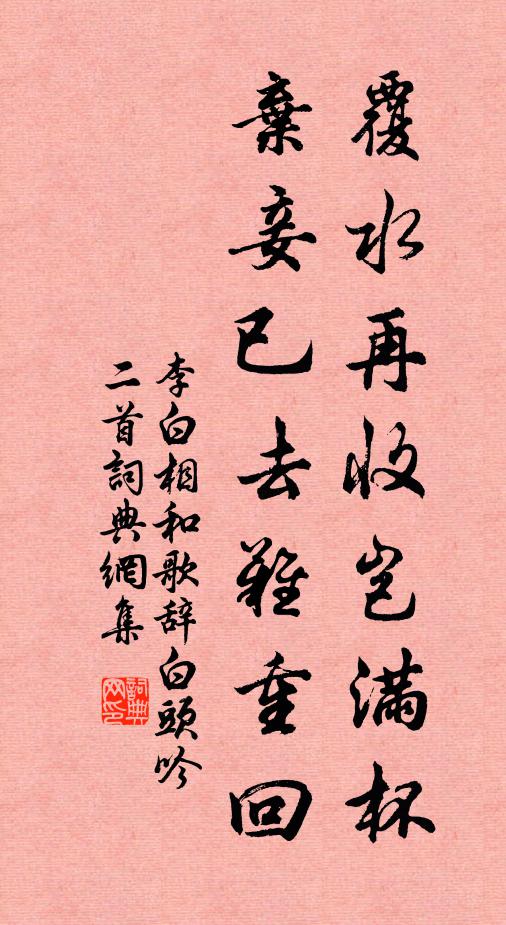 覆水再收岂满杯
棄妾已去難重回
李白相和歌辞白頭吟
二首詞典網集
詞典网印